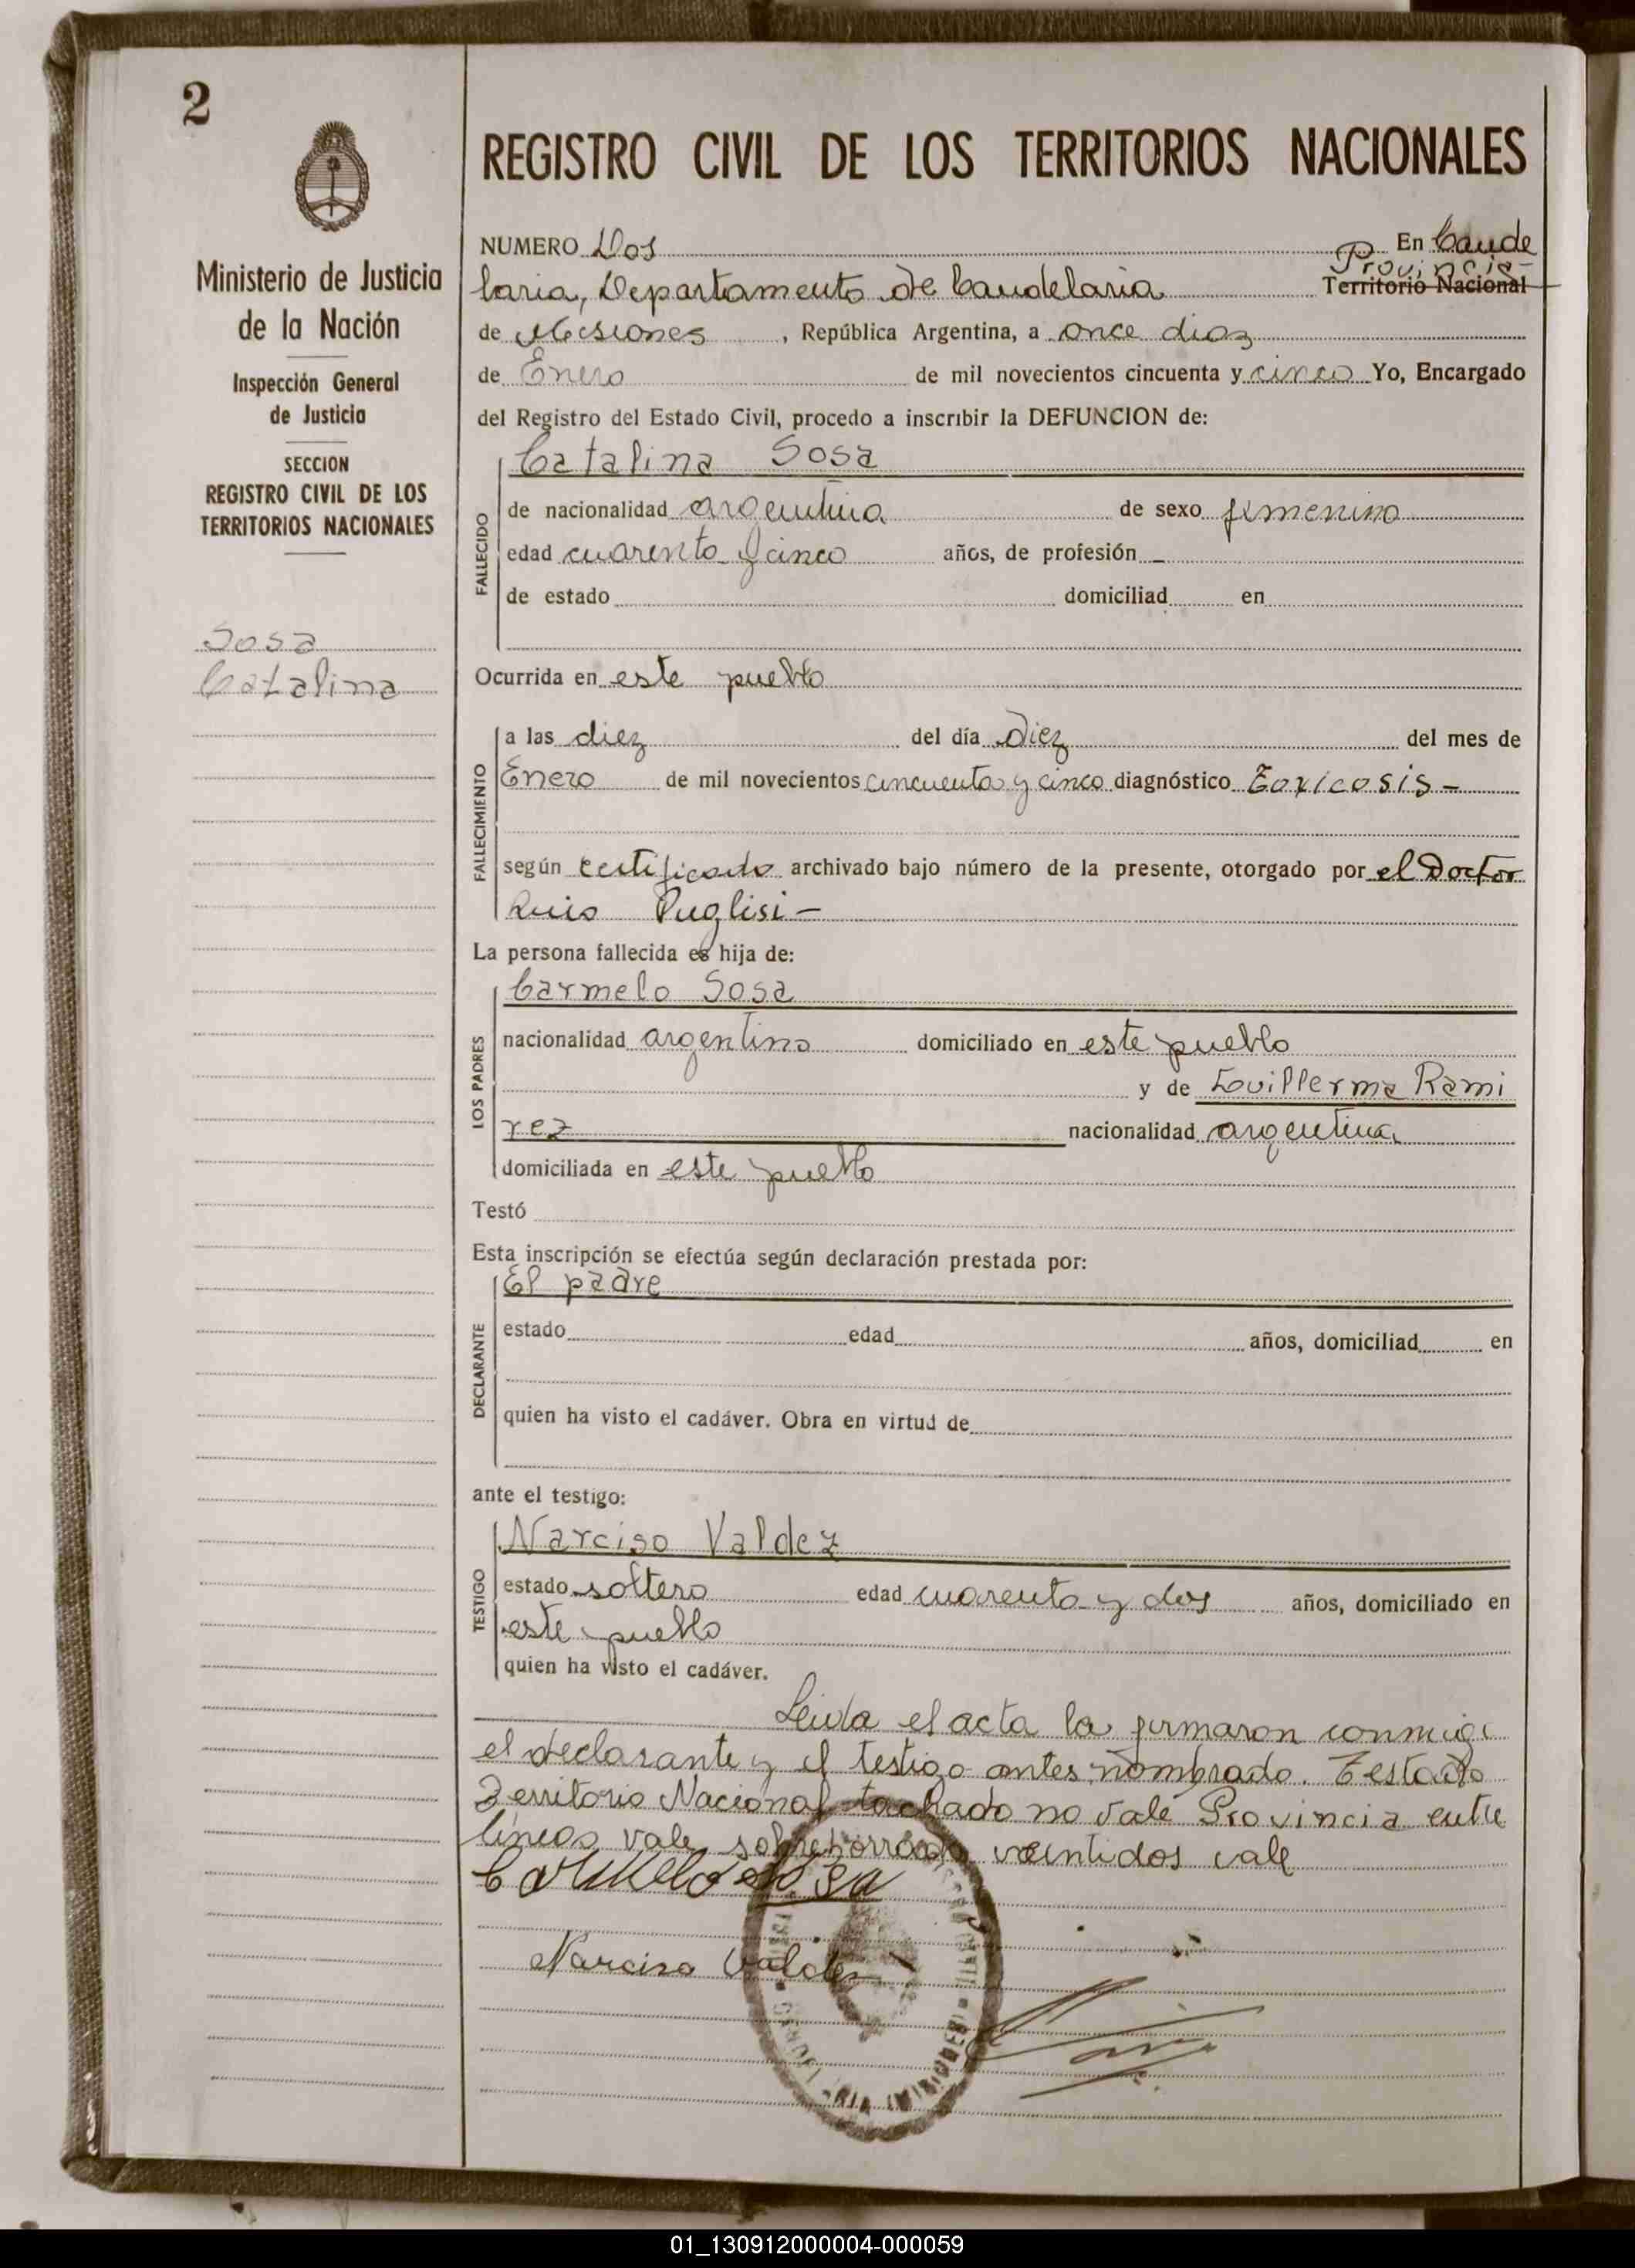 2
Ministerio de Justicia
de la Nación
Inspección General
de Justicia
SECCION
REGISTRO CIVIL DE LOS
TERRITORIOS NACIONALES
Sosa
Catalina
REGISTRO CIVIL DE LOS TERRITORIOS NACIONALES
NUMERO Dos En Cande
Provincia
laria, Departamento de Candelaria Territorio Nacional
de Misiones , República Argentina, a once dias
de Enero de mil novecientos cincuenta y cinco Yo, Encargado
del Registro del Estado Civil, procedo a inscribir la DEFUNCION de:
Catalina Sosa
FALLECIDO
de nacionalidad argentina de sexo femenino
edad cuarenta y cinco años, de profesión –
de estado domiciliad en
Ocurrida en este pueblo
FALLECIMIENTO
a las diez del día Diez del mes de
Enero de mil novecientos cincuenta y cinco diagnóstico Toxicosis –
según certificado archivado bajo número de la presente, otorgado por el Doctor
Luis Puglisi –
La persona fallecida es hija de:
LOS PADRES
Carmelo Sosa
nacionalidad argentino domiciliado en este pueblo
y de Guillerma Rami
rez nacionalidad argentina
domiciliada en este pueblo
Testó
Esta inscripción se efectúa según declaración prestada por:
DECLARANTE
El padre
estado edad años, domiciliad en
quien ha visto el cadáver. Obra en virtud de
ante el testigo:
TESTIGO
Narciso Valdez
estado soltero edad cuarenta y dos años, domiciliado en
este pueblo
quien ha visto el cadáver.
Leida el acta la firmaron conmigo
el declarante y el testigo antes nombrado. Testado
Territorio Nacional tachado no vale Provincia entre
lineas vale sobreborrado veintidos vale
Carmelo Sosa
Narciso Valdez
01_130912000004-000059